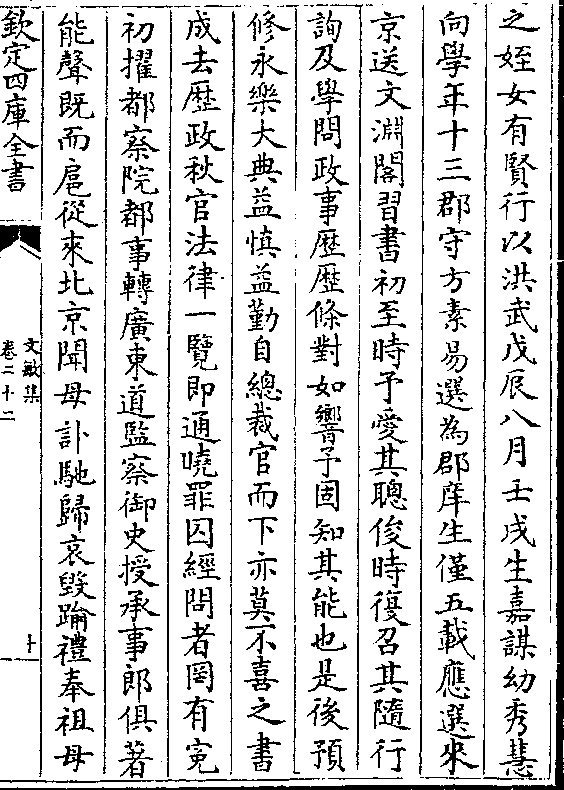 之姪女有賢行以洪武戊辰八月壬戌生嘉謀幼秀慧
向學年十三郡守方素易選為郡庠生僅五載應選來
京送文淵閣習書初至時予愛其聰俊時復召其隨行
詢及學問政事歷歷條對如響予固知其能也是後預
修永樂大典益慎益勤自總裁官而下亦莫不喜之書
成去歷政秋官法律一覽即通曉罪囚經問者罔有寃
初擢都察院都事轉廣東道監察御史授承事郎俱著
能聲既而扈從來北京聞母訃馳歸哀毀踰禮奉祖母
欽定四庫全書
文敏集
卷二十二
十